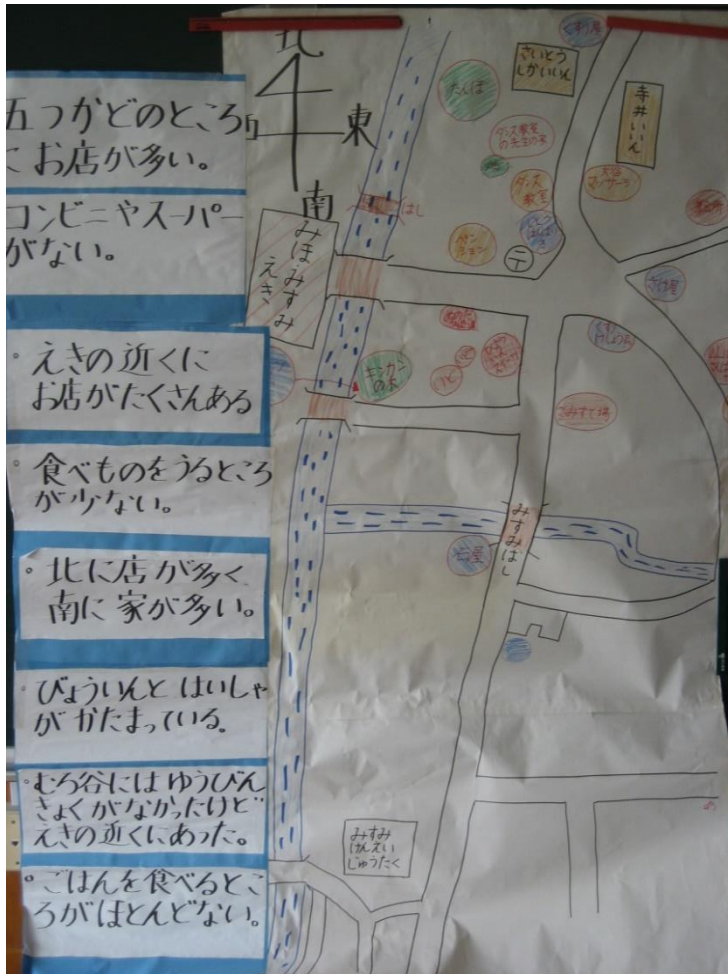 五つかどのところ
にお店が多い。
コンビニやスーパー
がない。
・えきの近くに
お店がたくさんある
・食べものをうるところ
が少ない。
・北に店が多く
南に家が多い。
・びょういんとはいしゃ
がかたまっている。
・むろ谷にはゆうびん
きょくがなかったけど
えきの近くにあった。
・ごはんを食べるとこ
ろがほとんどない。
北
東
南
みほみすみ
えき
はし
たんぼ
くすり屋
さいとう
しかいいん
寺井いいん
ダンス教室
の先生の家
ダンス
教室
ペン
ション
〒
マッサージ
さけ屋
キンカン
の木
くすり
けしょうひん
ごみすて場
みすみばし
みすみ
けんえい
じゅうたく